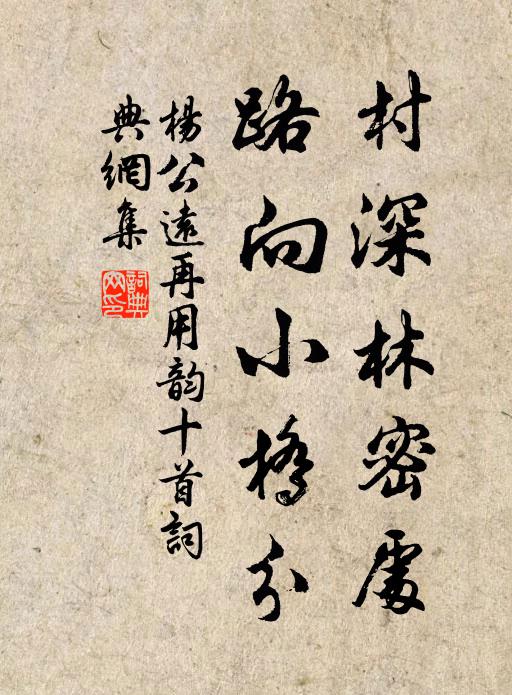 村深林密處
路向小橋分
楊公遠再用韵十首詞
典網集
詞典網印